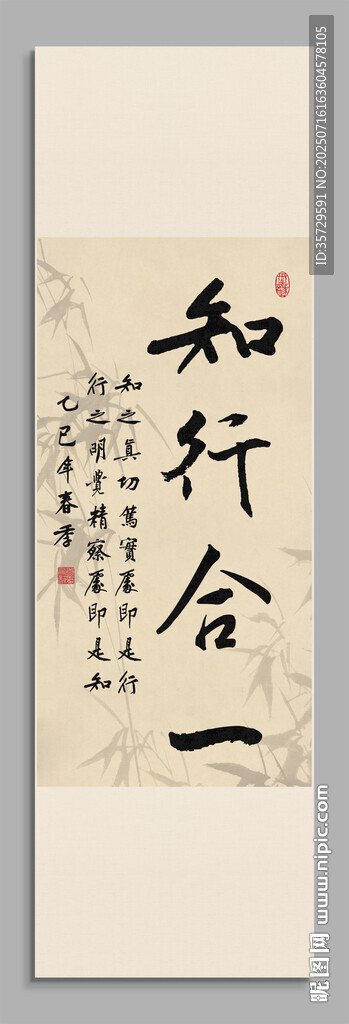 知行合一
知之真切篤實處即是行
行之明覺精察處即是知
乙巳年春季
ID:35729591 NO:20250716163604578105
昵图网 www.nipic.com